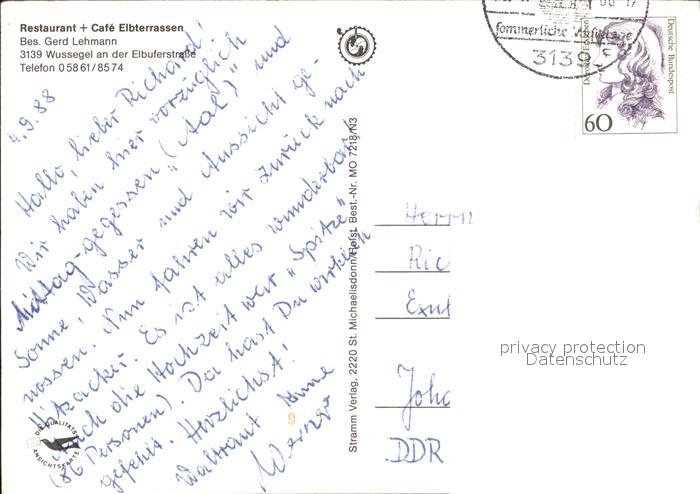 Restaurant + Café Elbterrassen
Bes. Gerd Lehmann
3139 Wussegel an der Elbuferstraße
Telefon 0 58 61 / 85 74
4.9.88
Hallo, lieber Richard!
Wir haben hier vorzüglich
Mittag-gegessen „(Aal)" und
Sonne, Wasser und Aussicht ge-
nossen. Nun fahren wir zurück nach
Hitzacker. Es ist alles wunderbar,
Auch die Hochzeit war „Spitze"
(86 Personen). Da hast Du wirklich
gefehlt. Herzlichst!
Waltraut
DIE QUALITÄTS
ANSICHTSKARTE
9
Stramm Verlag, 2220 St. Michaelisdonn/Holst. Best.-Nr. MO 7218/N3
sommerliche
3139
Deutsche Bundespost
60
Herrn
Ric
Joha
DDR
privacy protection
Datenschutz